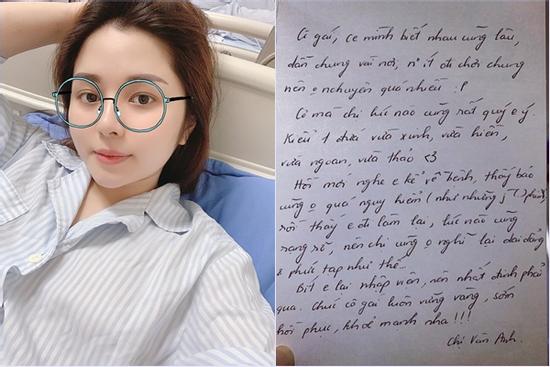 Cô gái, ce mình biết nhau cũng lâu,
dẫn chung vài nơi, n' ít đi chơi chung
nên o nchuyện quá nhiều :P
Cơ mà chị lúc nào cũng rất quý e ý.
Kiểu 1 đứa vừa xinh, vừa hiền,
vừa ngoan, vừa thảo <3
Hồi mới nghe e kể về bệnh, thấy bảo
cũng o quá nguy hiểm (như những
rồi thấy e đi làm lại, lúc nào cũng
rạng rỡ, nên chị cũng o nghĩ lại dai dẳng
& phức tạp như thế...
Biết e lại nhập viện, nên nhất định phải
qua. Chúc cô gái luôn vững vàng, sớm
hồi phục, khoẻ mạnh nha !!!
Chị Vân Anh.